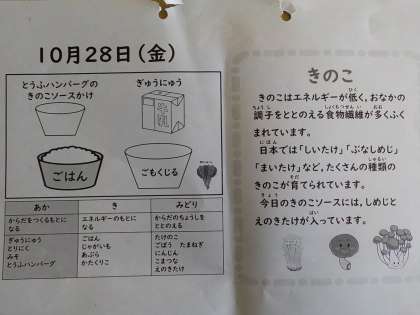 10月28日（金）
とうふハンバーグの
きのこソースかけ
ぎゅうにゅう
牛乳
ごはん
ごもくじる
あか
き
みどり
からだをつくるもとに
なる
エネルギーのもとに
なる
からだのちょうしを
ととのえる
ぎゅうにゅう
とりにく
みそ
とうふハンバーグ
ごはん
じゃがいも
あぶら
かたくりこ
たけのこ
ごぼう　たまねぎ
にんじん
こまつな
えのきたけ
きのこ
きのこはエネルギーが低く、おなかの
調子をととのえる食物繊維が多くふく
まれています。
日本では「しいたけ」「ぶなしめじ」
「まいたけ」など、たくさんの種類の
きのこが育てられています。
今日のきのこソースには、しめじと
えのきたけが入っています。